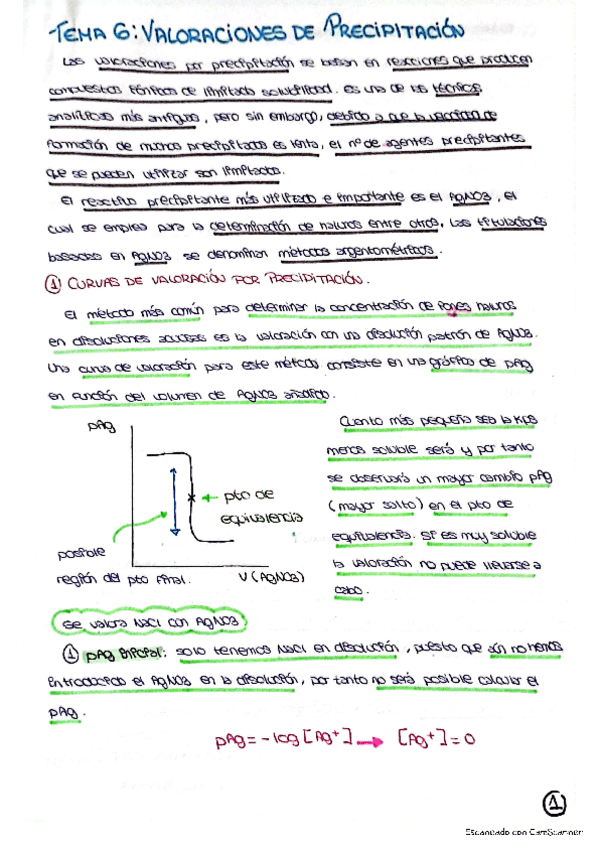 TEMA 6: VALORACIONES DE PRECIPITACIÓN
Las valoraciones por precipitación se basan en reacciones que producen
compuestos iónicos de limitada solubilidad. es una de las técnicas
analíticas más antiguas, pero sin embargo, debido a que la velocidad de
formación de muchos precipitados es lenta, el nº de agentes precipitantes
que se pueden utilizar son limitados.
El reactivo precipitante más utilizado e importante es el AgNO3, el
cual se emplea para la determinación de haluros entre otros, las titulaciones
basadas en AgNO3 se denominan métodos argentométricos.
① CURVAS DE VALORACIÓN POR PRECIPITACIÓN.
El método más común para determinar la concentración de iones haluros
en disoluciones acuosas es la valoración con una disolución patrón de AgNO3.
Una curva de valoración para este método consiste en una gráfica de pAg
en función del volumen de AgNO3 añadido.
pAg
pto de
equivalencia
posible
región del pto final.
V (AgNO3)
Cuanto más pequeña sea la Kps
menos soluble será y por tanto
se observará un mayor cambio pAg
(mayor salto) en el pto de
equivalencia. Si es muy soluble
la valoración no puede llevarse a
cabo.
Se valora NaCl con AgNO3
① pAg inicial: solo tenemos NaCl en disolución, puesto que aún no hemos
introducido el AgNO3 en la disolución, por tanto no será posible calcular el
pAg.
pAg = -log [Ag+] → [Ag+] = 0
1
Escaneado con CamScanner